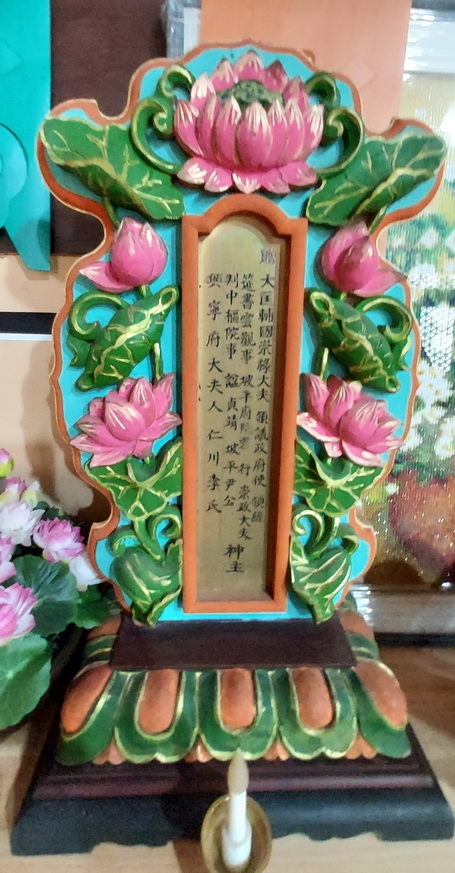 贈 大匡輔國崇祿大夫 領議政府使 領經
筵書雲觀事 坡平府院君 行 崇政大夫
判中樞院事 諡貞靖 坡平尹公
興寧府大夫人 仁川李氏
神主